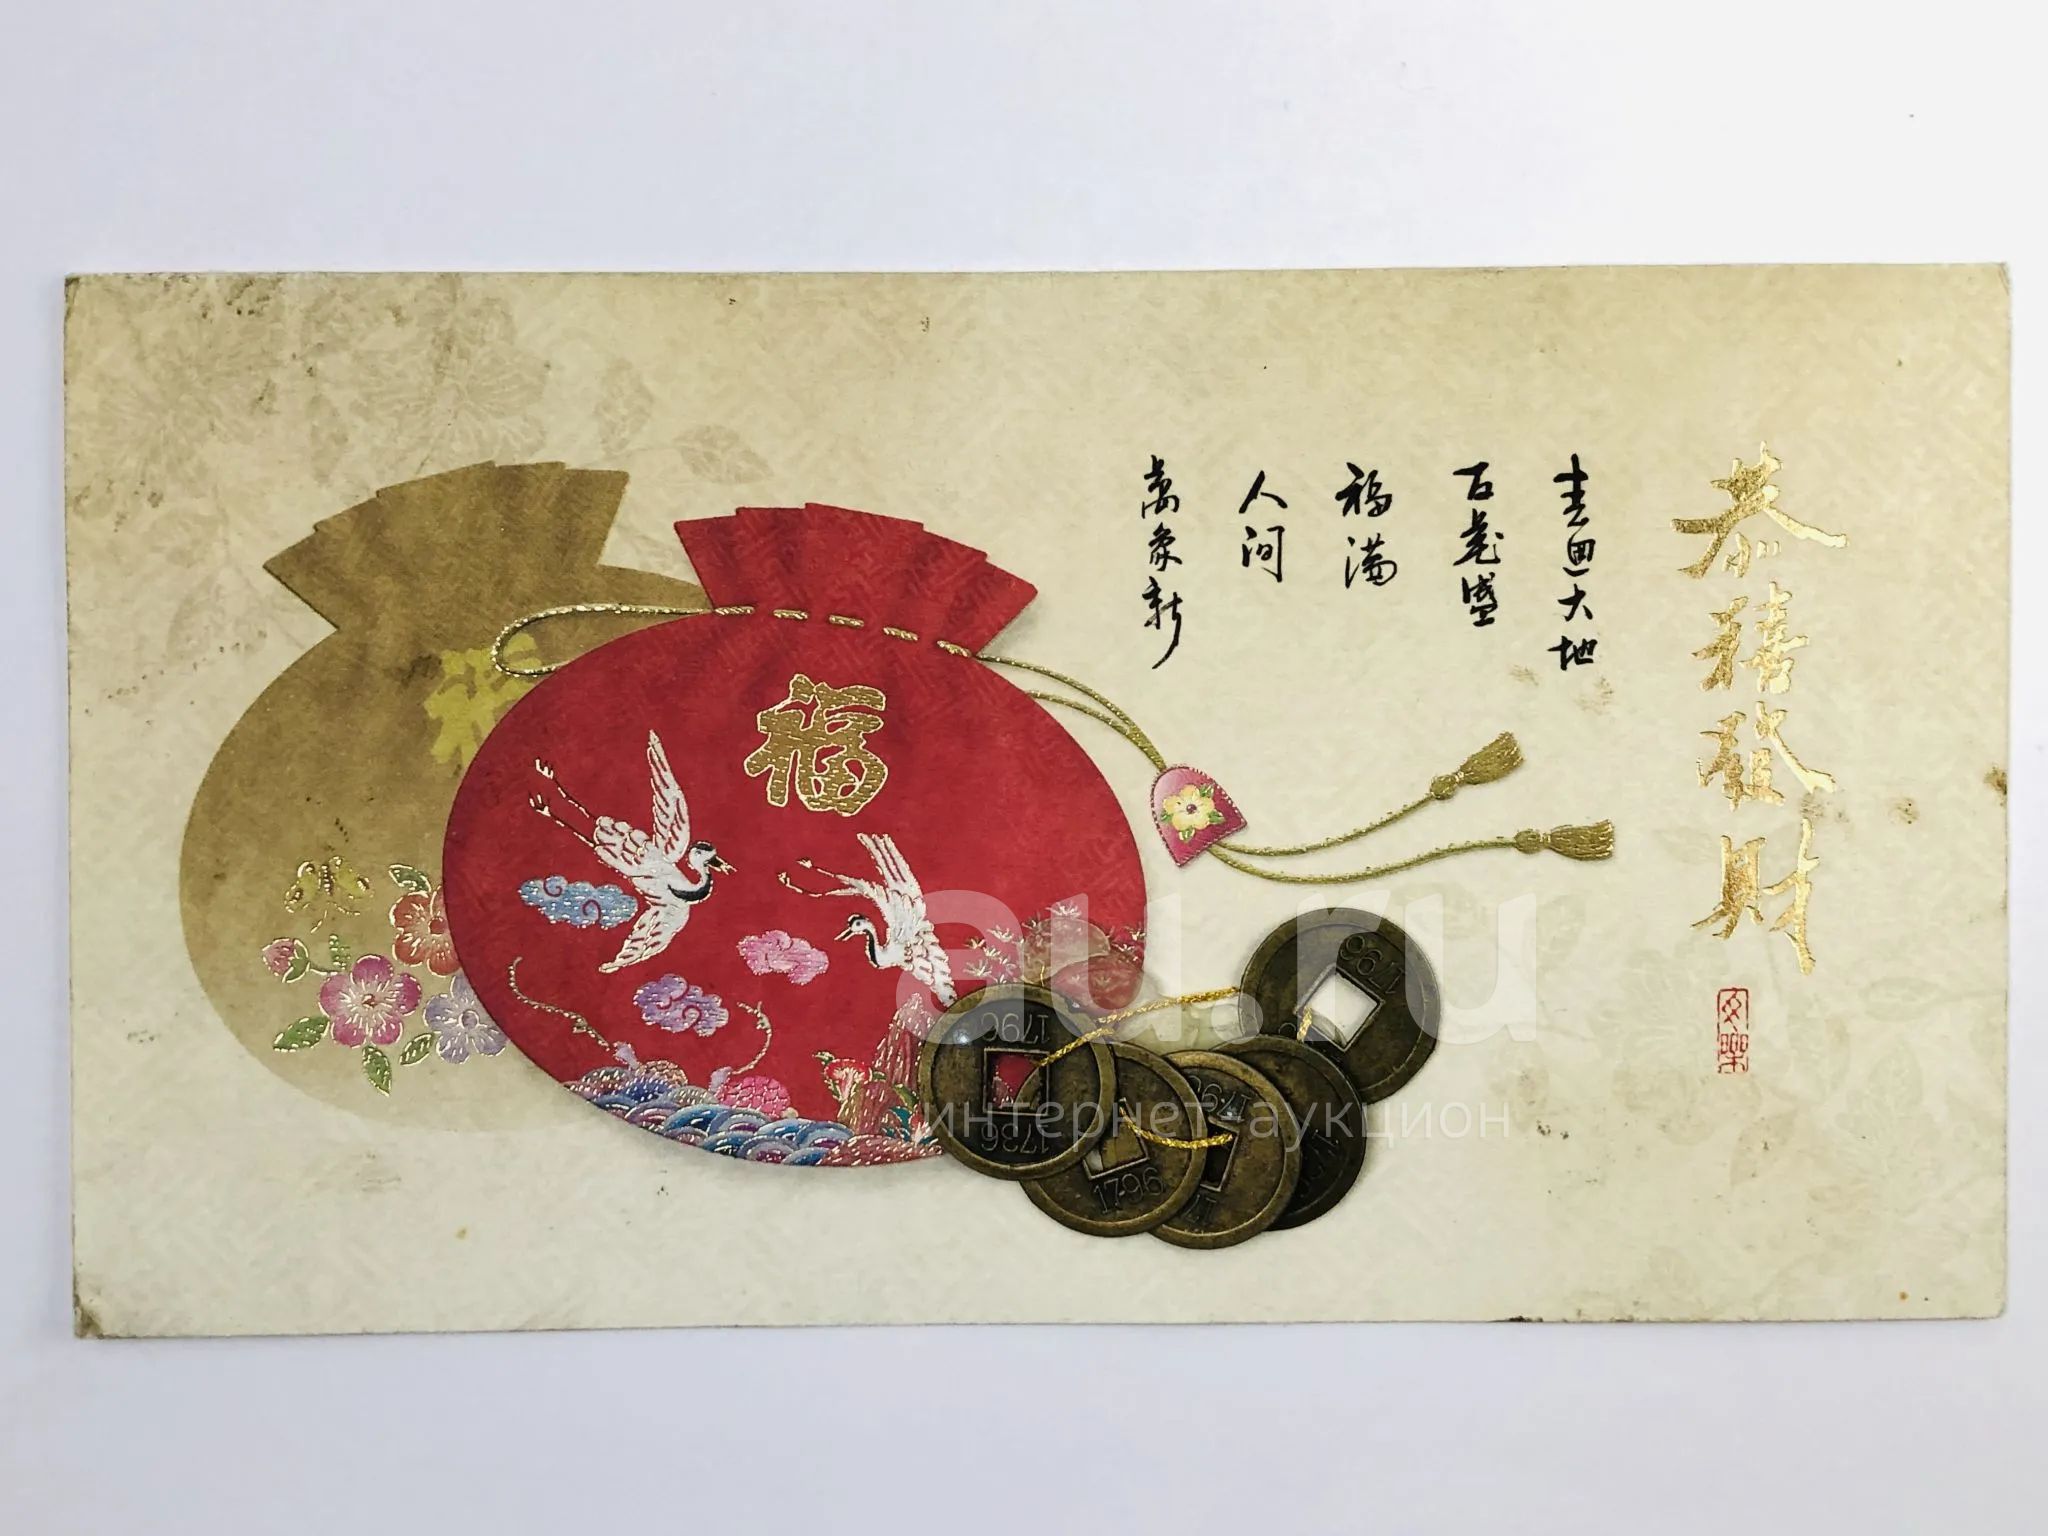 恭禧發財
春回大地
百花盛
福滿
人間
萬象新
福
1796
1796
1736
1796
au.ru
интернет-аукцион